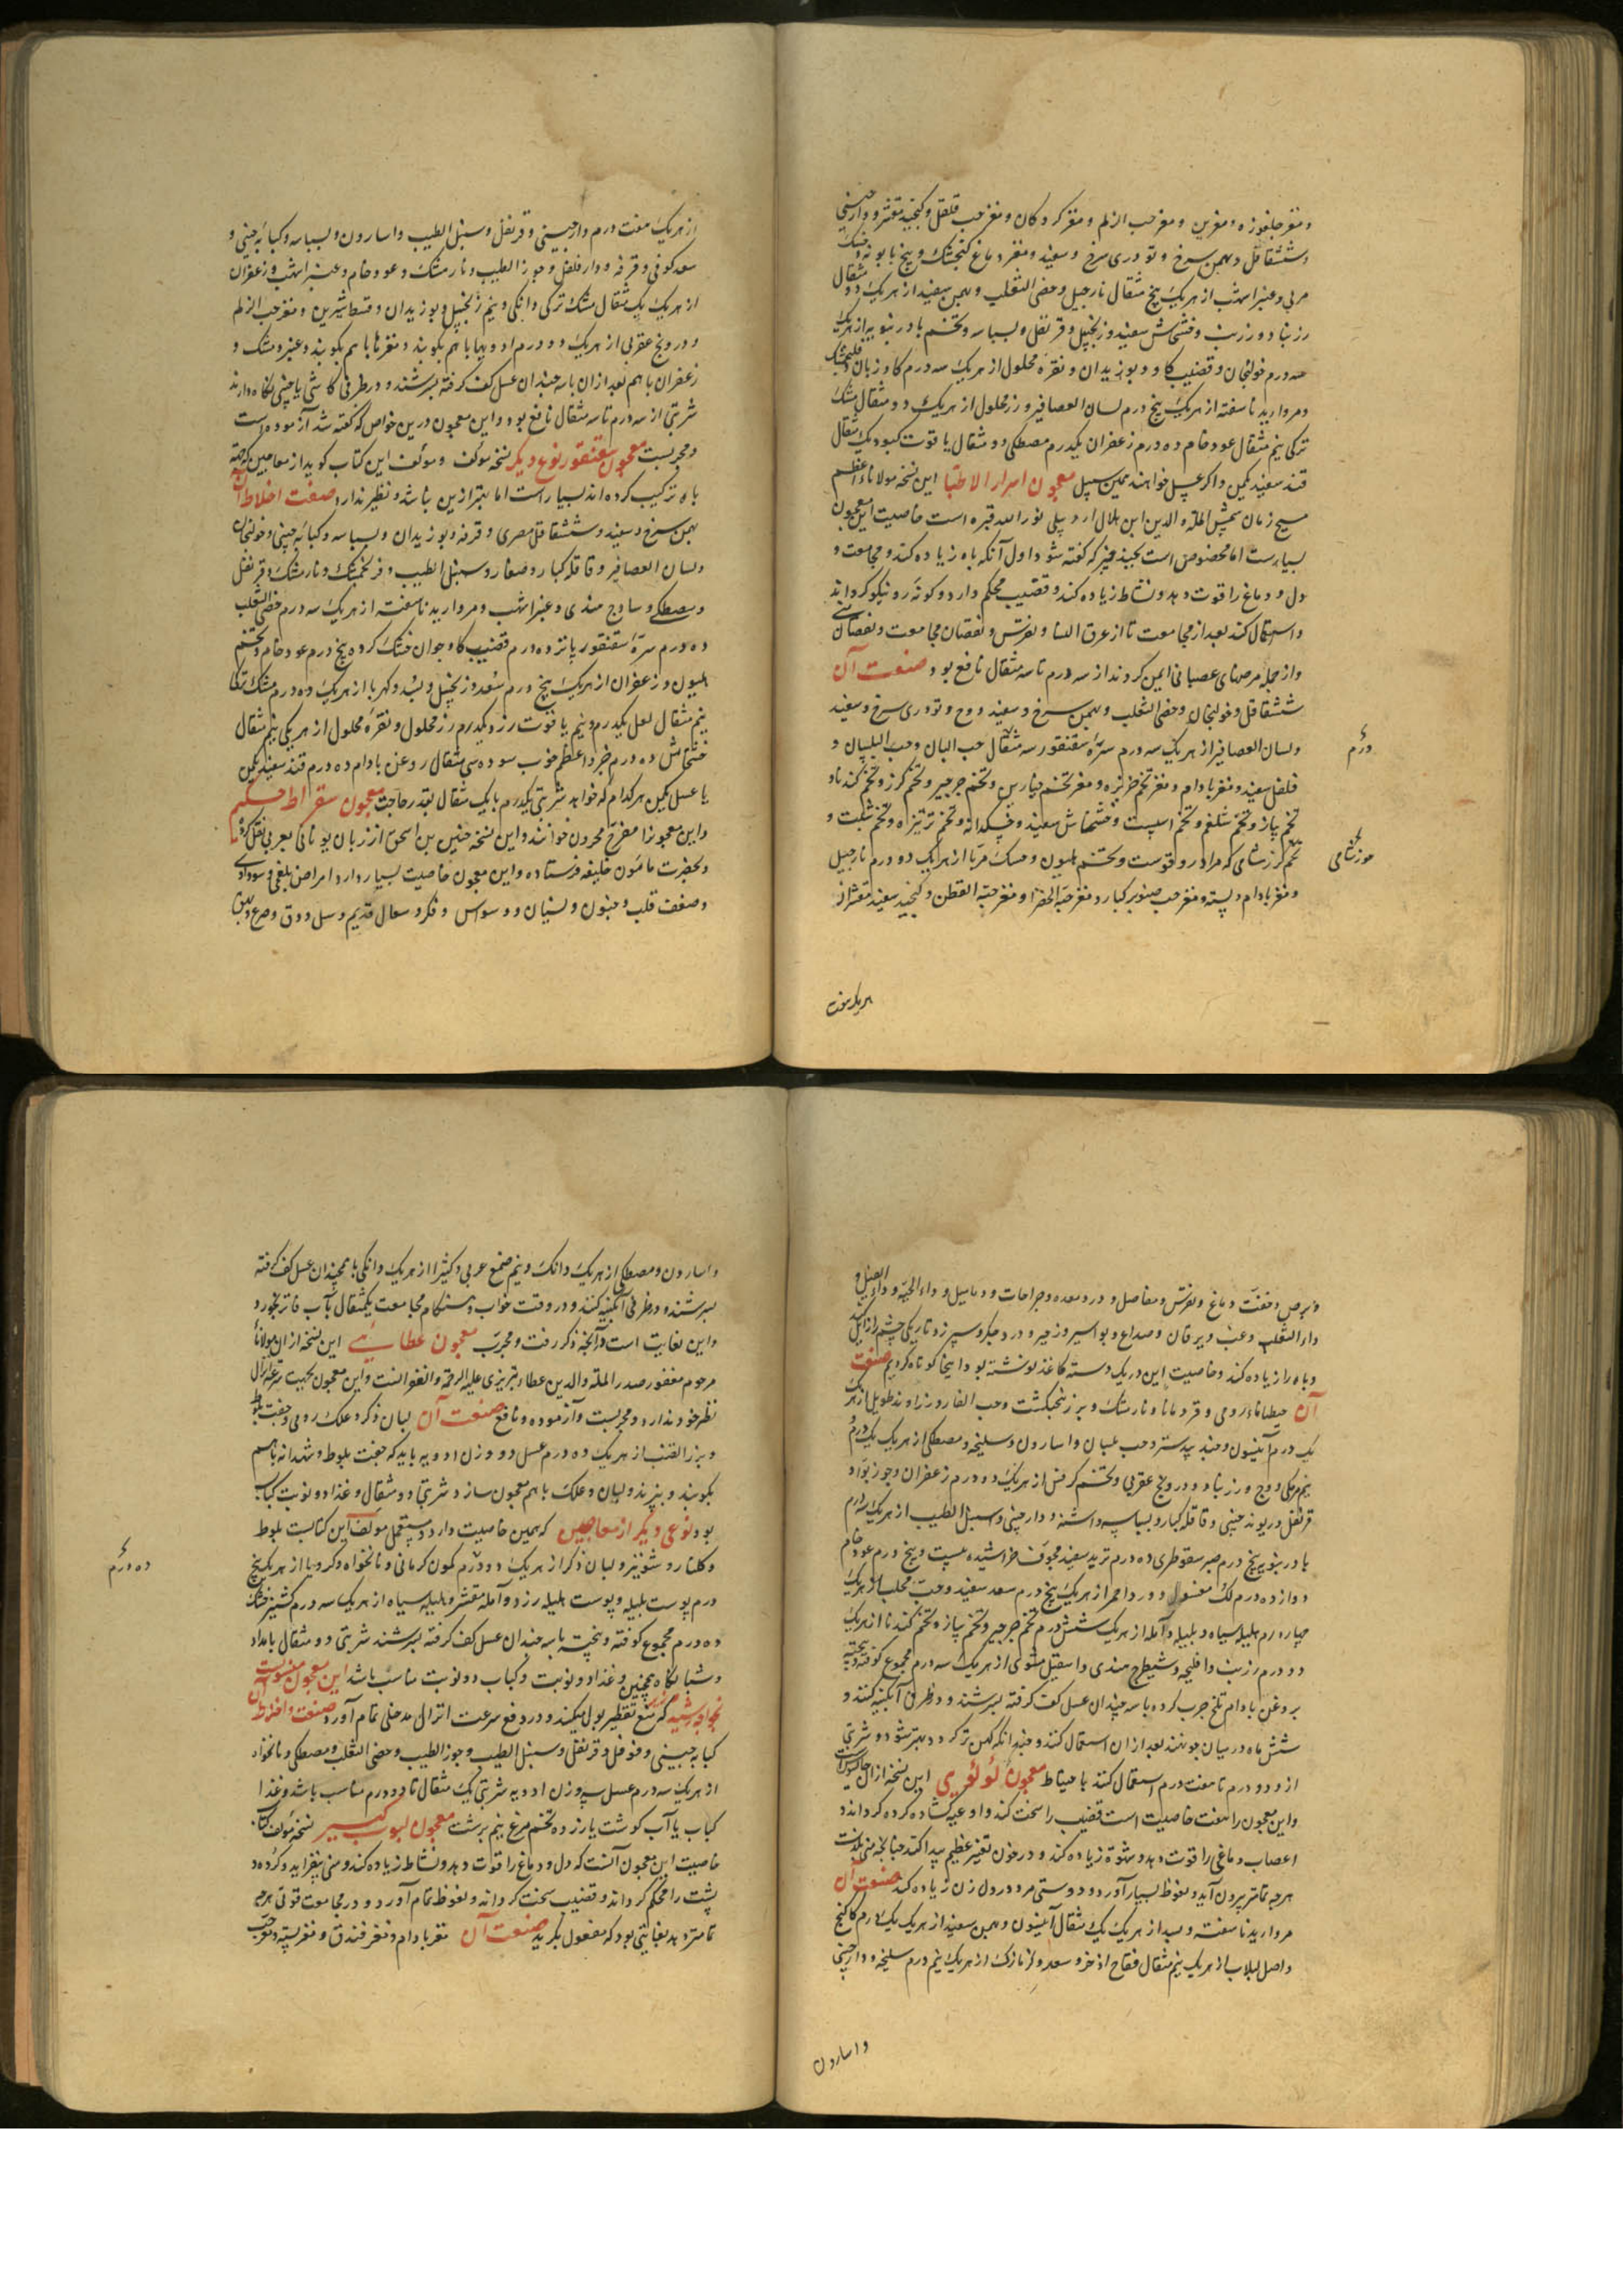 و مغز جلغوزه و مغزین و مغز حب الزلم و مغز کردکان و مغز حب قلقل و کنجید مقشر و دارچینی
و ششقاقل و بهمن سرخ و تودری سرخ و سفید و مغز دماغ کنجشک و بیخ بابونه و خسک
مربی و عنبر اشهب از هریک پنج مثقال نارجیل و خصی الثعلب و بهمن سفید از هریک دو مثقال
زرنباد و زرنب و خشخاش سفید و زنجبیل و قرنفل و بسباسه و تخم بادرنبویه از هریک
سه درم خولنجان و قضیب کاو و بوزیدان و نقره محلول از هریک سه درم کاوزبان و فلنجمشک
و مروارید ناسفته از هریک پنج درم لسان العصافیر و زر محلول از هریک دو مثقال مشک
ترکی نیم مثقال عود خام ده درم زعفران یکدرم مصطکی دو مثقال یاقوت کبود یک مثقال
قند سفید یکمن و اکر عسل خواهند همین سبیل معجون اسرار الاطبا این نسخه مولاناء اعظم
مسیح زمان شمس المله و الدین ابن هلال اردبیلی نور الله قبره است خاصیت این معجون
بسیارست اما مخصوص است بچند چیز که کفته شود اول آنکه باه زیاده کند و مجامعت و
دل و دماغ را قوت دهد و نشاط زیاده کند و قضیب محکم دارد و کونه رو نیکو کرداند
و استعمال کند بعد از مجامعت تا از عرق النسا و نقرس و نقصان مجامعت و نقصان منی
و از جمله مرضهای عصبانی ایمن کردند از سه درم تا سه مثقال نافع بود صنعت آن
ششقاقل و خولنجان و خصی الثعلب و بهمن سرخ و سفید و وج و تودری سرخ و سفید
و لسان العصافیر از هریک سه درم سره سقنقور سه مثقال حب البان و حب البلسان و
درم
فلفل سفید و مغز بادام و مغز تخم خربزه و مغز تخم خیارین و تخم جرجیر و تخم کرز و تخم کندنا و
تخم پیاز و تخم شلغم و تخم اسپست و خشخاش سفید و خسکدانه و تخم ترتیزه و تخم شبت و
تخم کرز شامی که مراد روقوست و تخم هلیون و خسک مربا از هریک دو درم نارجیل
موز شامی
و مغز بادام و پسته و مغز حب صنوبر کبار و مغز حبة الخضرا و مغز حبة القطن و کنجید سفید مقشر از
هریک هفت
از هریک هفت درم دارچینی و قرنفل و سنبل الطیب و اسارون و بسباسه و کبابه چینی و
سعد کوفی و قرفه و دارفلفل و جوز الطیب و نارمشک و عود خام و عنبر اشهب و زعفران
از هریک یک مثقال مشک ترکی دانکی و نیم زنجبیل و بوزیدان و قسط شیرین و مغز حب الزلم
و درونج عقربی از هریک دو درم ادویها با هم بکوبند و مغزها با هم بکوبند و عنبر و مشک و
زعفران با هم بعد از ان با سه چندان عسل کف کرفته بسرشند و در ظرفی کاشی یا چینی نکاه دارند
شربتی از سه درم تا سه مثقال نافع بود و این معجون درین خواص که کفته شد آزموده است
و مجربست معجون سقنقور نوع دیکر نسخه مؤلف و مؤلف این کتاب کوید از معاجین که جهة
باه ترکیب کرده اند بسیار است اما بهتر ازین نباشد و نظیر ندارد صفت اخلاط آن
بهمن سرخ و سفید و ششقاقل مصری و قرفه و بوزیدان و بسباسه و کبابه چینی و خولنجان
و لسان العصافیر و قاقله کبار و صغار و سنبل الطیب و فرنجمشک و نارمشک و قرنفل
و مصطکی و ساذج هندی و عنبر اشهب و مروارید ناسفته از هریک سه درم خصی الثعلب
ده درم سرهٔ سقنقور پانزده درم قضیب کاو جوان خشک کرده پنج درم عود خام و تخم
هلیون و زعفران از هریک پنج درم سعد و زنجبیل و بسد و کهربا از هریک ده درم مشک ترکی
نیم مثقال لعل یکدرم و نیم یاقوت زرد یکدرم زر محلول و نقره محلول از هریکی نیم مثقال
خشخاش ده درم خبز و اعظم خوب سوده سی مثقال روغن بادام ده درم قند سفید یکمن
یا عسل یکمن هرکدام که خواهد شربتی یکدرم یا یک مثقال بقدر حاجت معجون سقراط حکیم
و این معجون را مفرح محزون خوانند و این نسخه حنین بن اسحق از زبان یونانی بعربی نقل کرده
و بحضرت مامون خلیفه فرستاده و این معجون خاصیت بسیار دارد امراض بلغمی و سوداوی
و ضعف قلب و جنون و نسیان و وسواس و فکر و سعال قدیم و سل و دق و صرع و بهق
و برص و خفت دماغ و نقرس و مفاصل و درد معده و جراحات و دمامیل و داء الحیه و داء الفیل و
داء الثعلب و عنب و یرقان و صداع و بواسیر و زحیر و درد جکر و سپرز و تاریکی چشم زایل کند
و باه را زیاده کند و خاصیت این در یک دسته کاغذ نوشته بود اینجا کوتاه کردیم صنعت
آن حیطاناء رومی و قردمانا و نارمشک و بزر نجبکشت و حب الغار و زراوند طویل از هریک
یک درم آنیسون و جند بیدستر و حب بلسان و اسارون و سلیخه و مصطکی از هریک یک درم
نیم مرمکی و وج و زرنباد و درونج عقربی و تخم کرفس از هریک دو درم زعفران و جوز بوا و
قرنفل و ریوند چینی و قاقله کبار و بسباسه و اشنه و دارچینی و سنبل الطیب از هریک سه درم
بادرنبویه پنج درم صبر سقوطری ده درم تربد سفید مجوف خراشیده بیست و پنج درم عود خام
دوازده درم لک مغسول و ورد احمر از هریک پنج درم سعد سفید و حب محلب از هریک
چهار درم هلیله سیاه و بلیله و آمله از هریک شش درم تخم جرجیر و تخم پیاز و تخم کندنا از هریک
دو درم زرنب و افلنجه و شیطرج هندی و اسقیل مشوی از هریک سه درم مجموع کوفته و پیخته
بروغن بادام تلخ چرب کرده با سه چندان عسل کف کرفته بسرشند و در ظرف آبکینه کنند و
شش ماه در میان جو نهند بعد از ان استعمال کنند و چندانکه کهن تر کردد بهتر شود و شربتی
از دو درم تا هفت درم استعمال کنند با احتیاط معجون لؤلؤی این نسخه از ان
و این معجون را هفت خاصیت است قضیب را سخت کند و اوعیه کشاده کرده کرداند و
اعصاب دماغی را قوت دهد و شهوة زیاده کند و در خون تغیر عظیم پیدا کند چنانچه منی بلذت
هرچه تمامتر بیرون آید و نعوظ بسیار آورد و دوستی مرد در دل زن زیاده کند صنعت آن
مروارید ناسفته و بسد از هریک یک مثقال آنیسون و بهمن سفید از هریک یک درم کاکنج
و اصل لبلاب از هریک نیم مثقال فقاح اذخر و سعد و زنارنک از هریک نیم درم سلیخه و دارچینی
و اسارون
و اسارون و مصطکی از هریک دانک و نیم صمغ عربی و کثیرا از هریک دانکی با همچندان عسل کف کرفته
بسرشند و در ظرفی آبکینه کنند و در وقت خواب و هنکام مجامعت یکمثقال بآب فاتر بخورد
و این بغایت است در آنچه ذکر رفت و مجرب معجون عطائی این نسخه از ان مولانا
مرحوم مغفور صدر المله و الدین عطار تبریزی علیه الرحمة و الغفرانست و این معجون بجهت سرعت انزال
نظیر خود ندارد و مجربست و آزموده و نافع صنعت آن لبان ذکر و علک رومی و جفت بلوط
و بزر القنب از هریک ده درم عسل دو وزن ادویه باید که جفت بلوط و شهدانه با هم
بکوبند و بپزند و لبان و علک با هم معجون سازد شربتی دو مثقال و غذا دو نوبت کباب
بود نوعی دیکر از معاجین که همین خاصیت دارد و مستعمل مؤلف این کتابست بلوط
و کلنار و شونیز و لبان ذکر از هریک دو درم کمون کرمانی و نانخواه و کرویا از هریک پنج
ده درم
درم پوست بلیله و پوست هلیله زرد و آمله مقشر و هلیله سیاه از هریک سه درم کشنیز خشک
ده درم مجموع کوفته و پیخته با سه چندان عسل کف کرفته بسرشند شربتی دو مثقال بامداد
و شبانکاه همچنین و غذا دو نوبت و کباب دو نوبت مناسب باشد این معجون منسوبست
بخواجه رشید که منع تقطیر بول میکند و در دفع سرعت انزال مدخلی تمام آورد صنعت و اخلاط آن
کبابه چینی و فوفل و قرنفل و سنبل الطیب و جوز الطیب و خصی الثعلب و مصطکی و نانخواه
از هریک سه درم عسل سه وزن ادویه شربتی یک مثقال تا دو درم مناسب باشد و غذا
کباب یا آب کوشت یا زرده تخم مرغ نیم برشت معجون لبوب کبیر نسخه مؤلف کتاب
خاصیت این معجون آنست که دل و دماغ را قوت دهد و نشاط زیاده کند و منی بیفزاید و کرده و
پشت را محکم کرداند و قضیب سخت کرداند و نعوظ تمام آورد و در مجامعت قوتی هرچه
تمامتر دهد بغایتی بود که مفعول بکرید صنعت آن مغز بادام و مغز فندق و مغز پسته و مغز حب